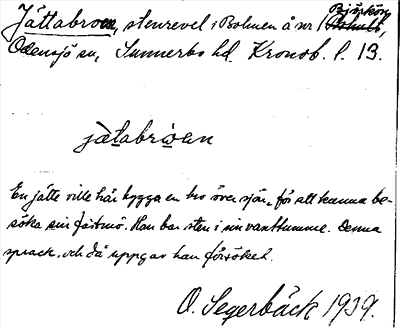 Björkön,
Jättabroen, stenrevel i Bolmen å nr 1
Odensjö sn, Sunnerbo hd. Kronob. l. 13.
jätabrωen
En jätte ville här bygga en bro över sjön, för att kunna be-
söka sin fästmö. Han bar sten i sin vanttumme. Denna
sprack, och då uppgav han försöket.
O. Segerbäck 1939.